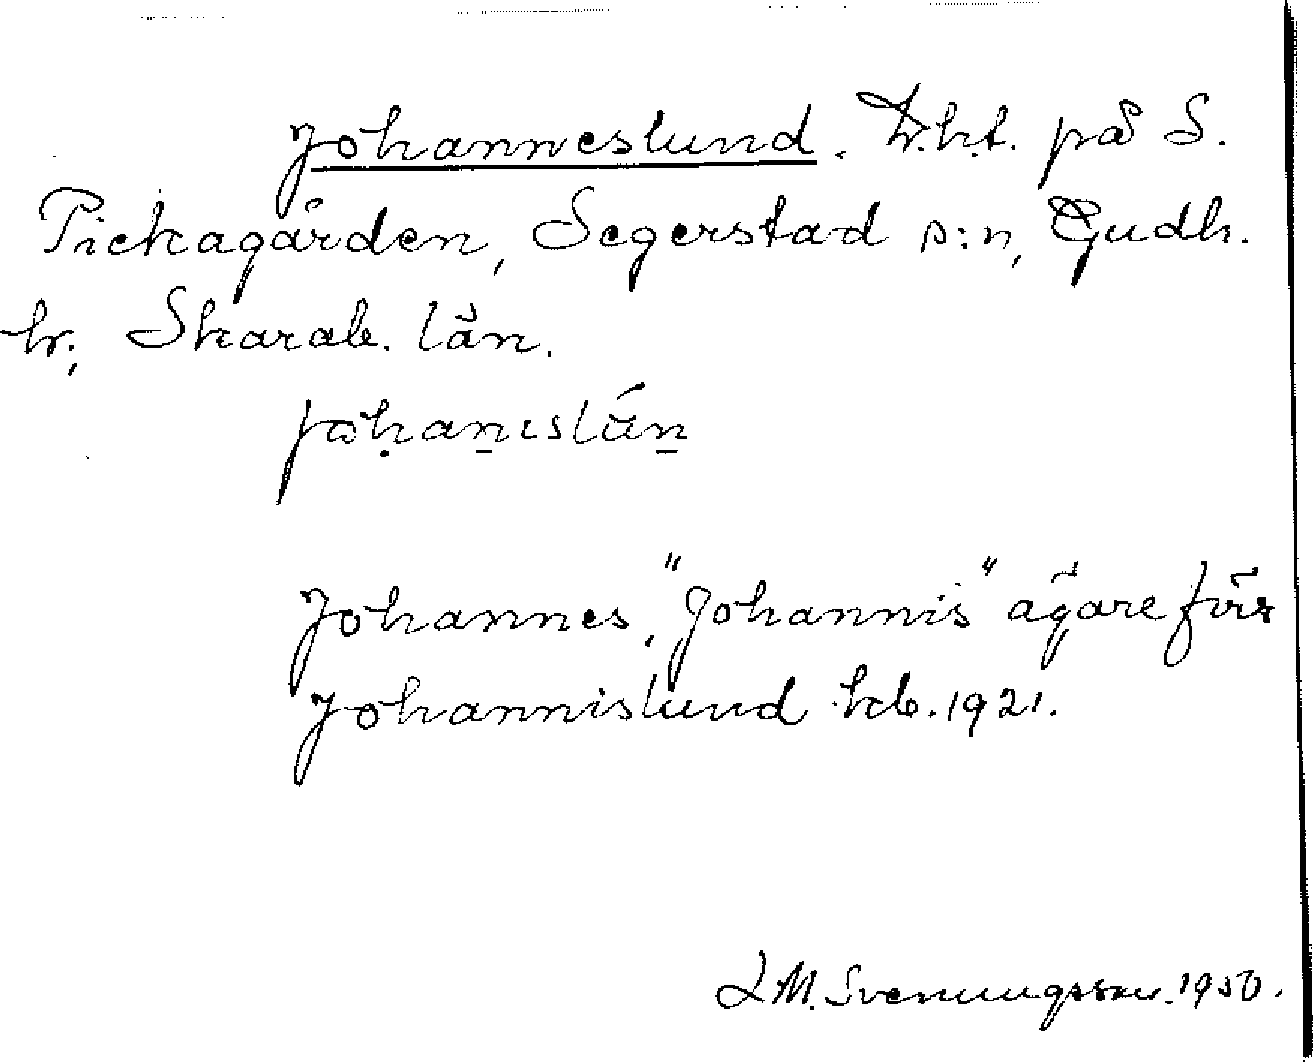 Johanneslund. Lht. på S.
Pickagården, Segerstad s:n, Gudh.
hr; Skarab. län.
johanıslún
Johannes, "Johannis" ägare förr
Johannislund hfb. 1921.
L M. Svenungsson. 1950.